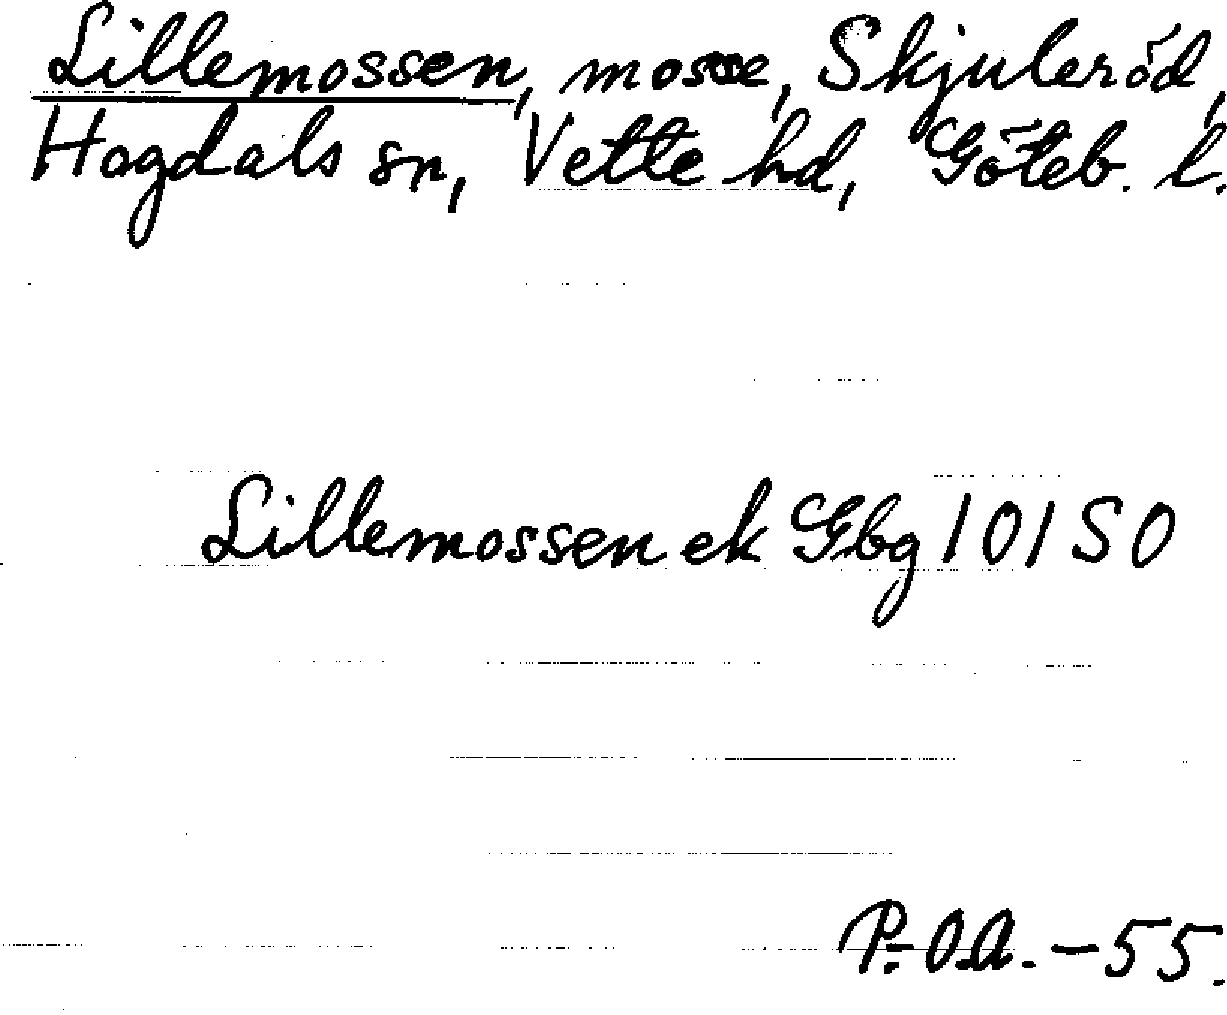 Lillemossen, mosse, Skjuleröd,
Hogdals sn, Vette hd, Göteb. l.
Lillemossen ek Gbg 10150
P.-O.A. -55.